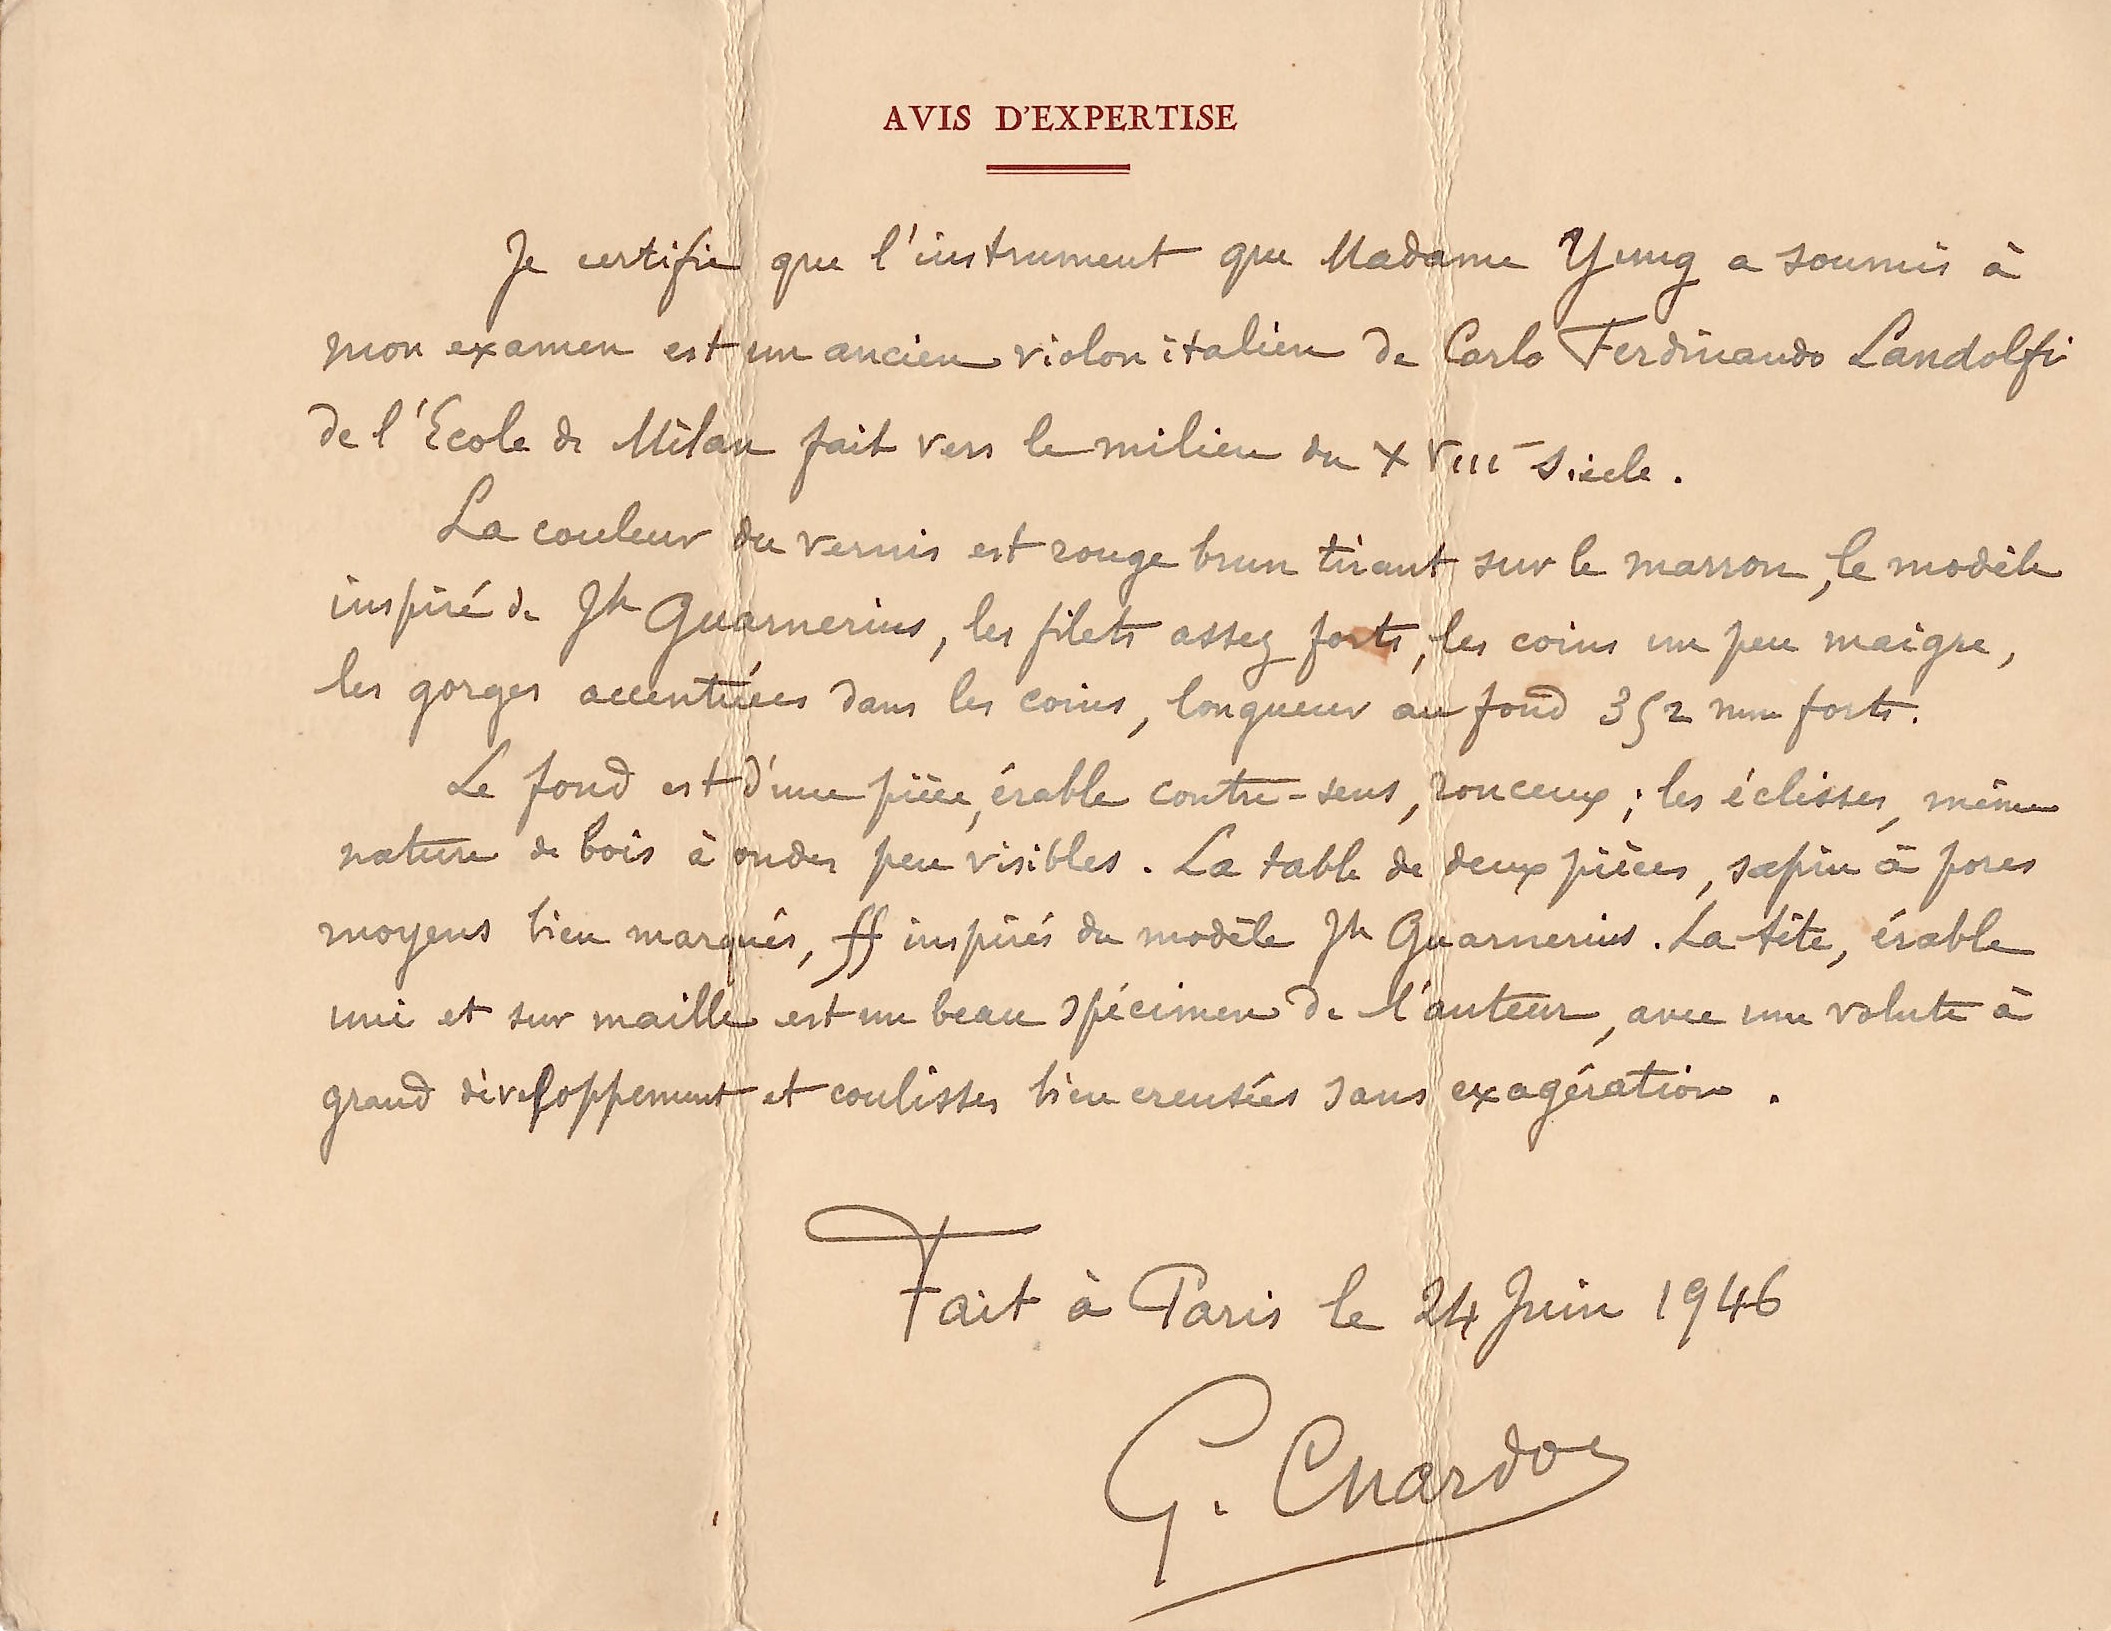 AVIS D'EXPERTISE
Je certifie que l'instrument que Madame Yung a soumis à
mon examen est un ancien violon italien de Carlo Ferdinando Landolfi
de l'Ecole de Milan fait vers le milieu du XVIII siècle.
La couleur du vernis est rouge brun tirant sur le marron, le modèle
inspiré de Jh Guarnerius, les filets assez forts, les coins un peu maigre,
les gorges accentuées dans les coins, longueur au fond 352 mm forts.
Le fond est d'une pièce, érable contre-sens, ronceux ; les éclisses, même
nature de bois à ondes peu visibles. La table de deux pièces, sapin à pores
moyens bien marqués, ff inspirés du modèle Jh Guarnerius. La tête, érable
uni et sur maille est un beau spécimen de l'auteur, avec une volute à
grand développement et coulisses bien creusées sans exagération.
Fait à Paris le 24 Juin 1946
G. Chardon